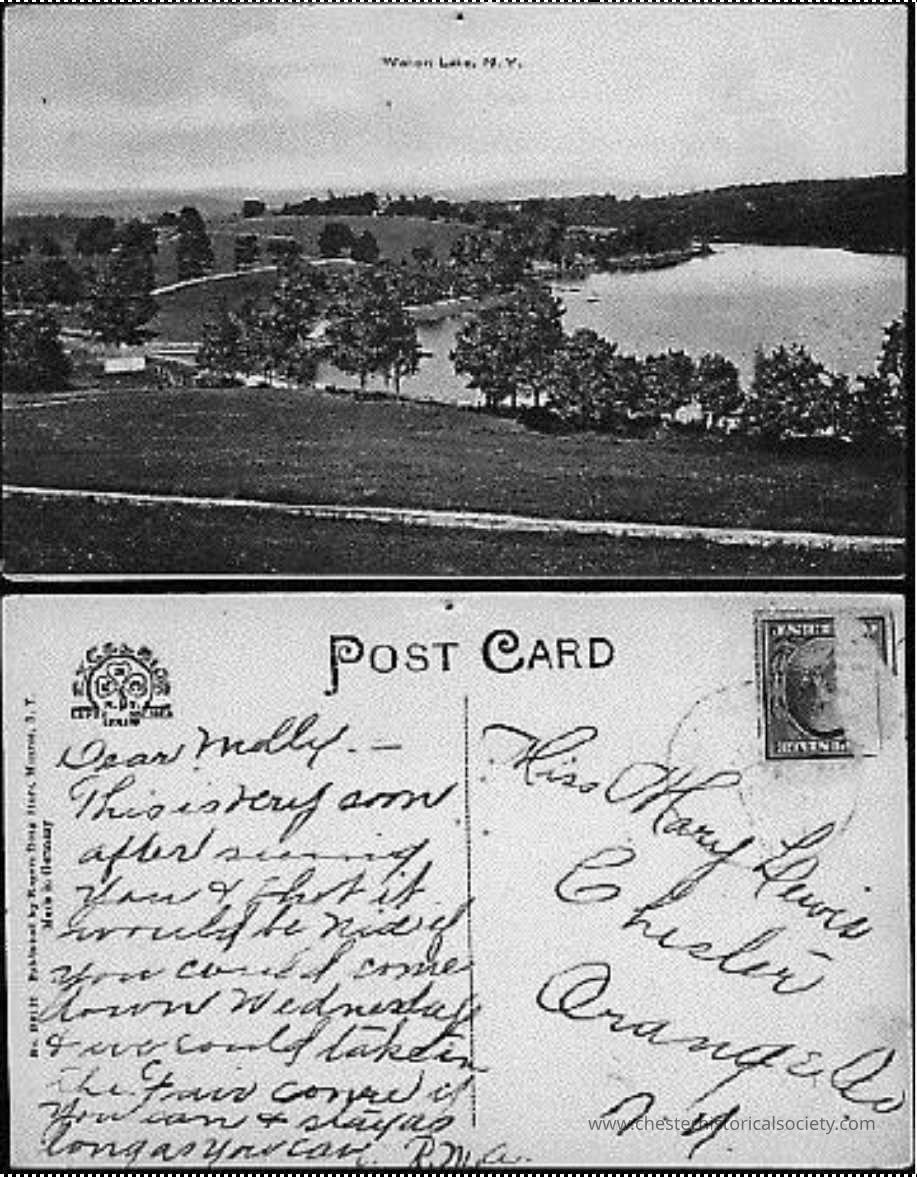 Walton Lake, N. Y.
POST CARD
EXCELSIOR
Dear Molly. —
This is very soon
after seeing
you & thot it
would be nice if
you could come
down Wednesday
& we could take in
the Fair come if
you can & stay as
long as you can. R.M.A.
Miss Mary Lewis
Chester
Orange Co
N.Y.
Published by Rogers Drug Store, Monroe, N. Y.
Made in Germany
www.chesterhistoricalsociety.com